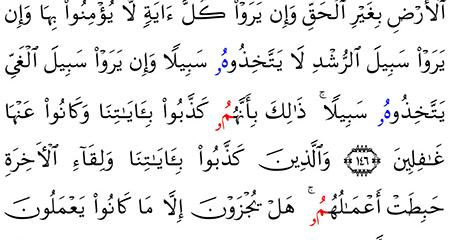 ٱلْأَرْضِ بِغَيْرِ ٱلْحَقِّ وَإِن يَرَوْا۟ كُلَّ ءَايَةٍ لَّا يُؤْمِنُوا۟ بِهَا وَإِن
يَرَوْا۟ سَبِيلَ ٱلرُّشْدِ لَا يَتَّخِذُوهُۥ سَبِيلًا وَإِن يَرَوْا۟ سَبِيلَ ٱلْغَىِّ
يَتَّخِذُوهُۥ سَبِيلًا ۚ ذَٰلِكَ بِأَنَّهُمُۥ كَذَّبُوا۟ بِـَٔايَـٰتِنَا وَكَانُوا۟ عَنْهَا
غَـٰفِلِينَ ١٤٦ وَٱلَّذِينَ كَذَّبُوا۟ بِـَٔايَـٰتِنَا وَلِقَآءِ ٱلْأَخِرَةِ
حَبِطَتْ أَعْمَـٰلُهُمُۥ ۚ هَلْ يُجْزَوْنَ إِلَّا مَا كَانُوا۟ يَعْمَلُونَ